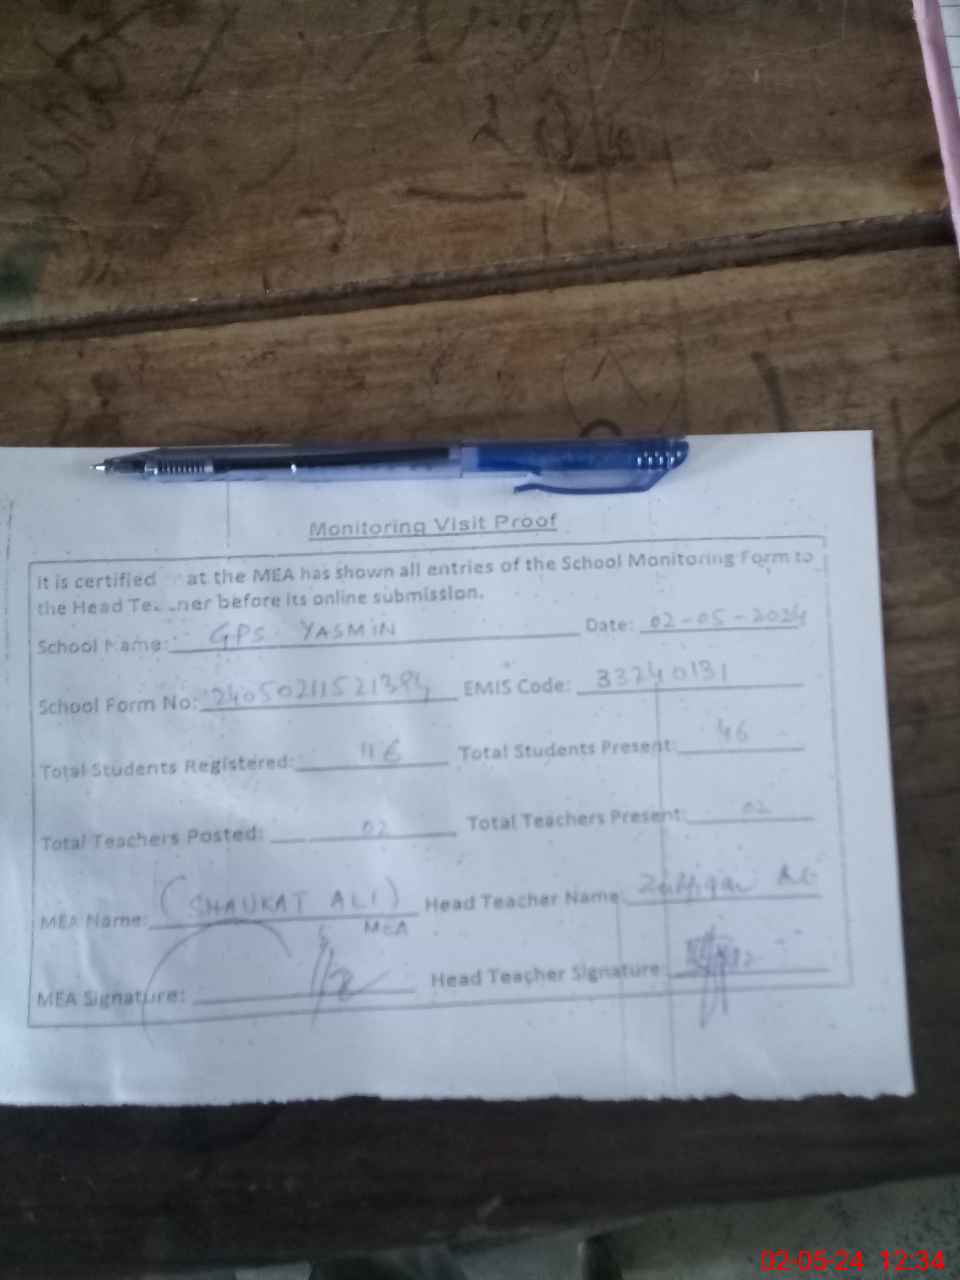 Monitoring Visit Proof
it is certified at the MEA has shown all entries of the School Monitoring Form to
the Head before its online submission.
School Name: GPS YASMIN Date: 02-05-2024
School Form No: EMIS Code: 33240131
Total Students Registered: Total Students Present: 46
Total Teachers Posted: 02 Total Teachers Present: 02
MEA Name: (SHAUKAT ALI) Head Teacher Name:
MEA
MEA Signature: Head Teacher Signature
02-05-24 12:34